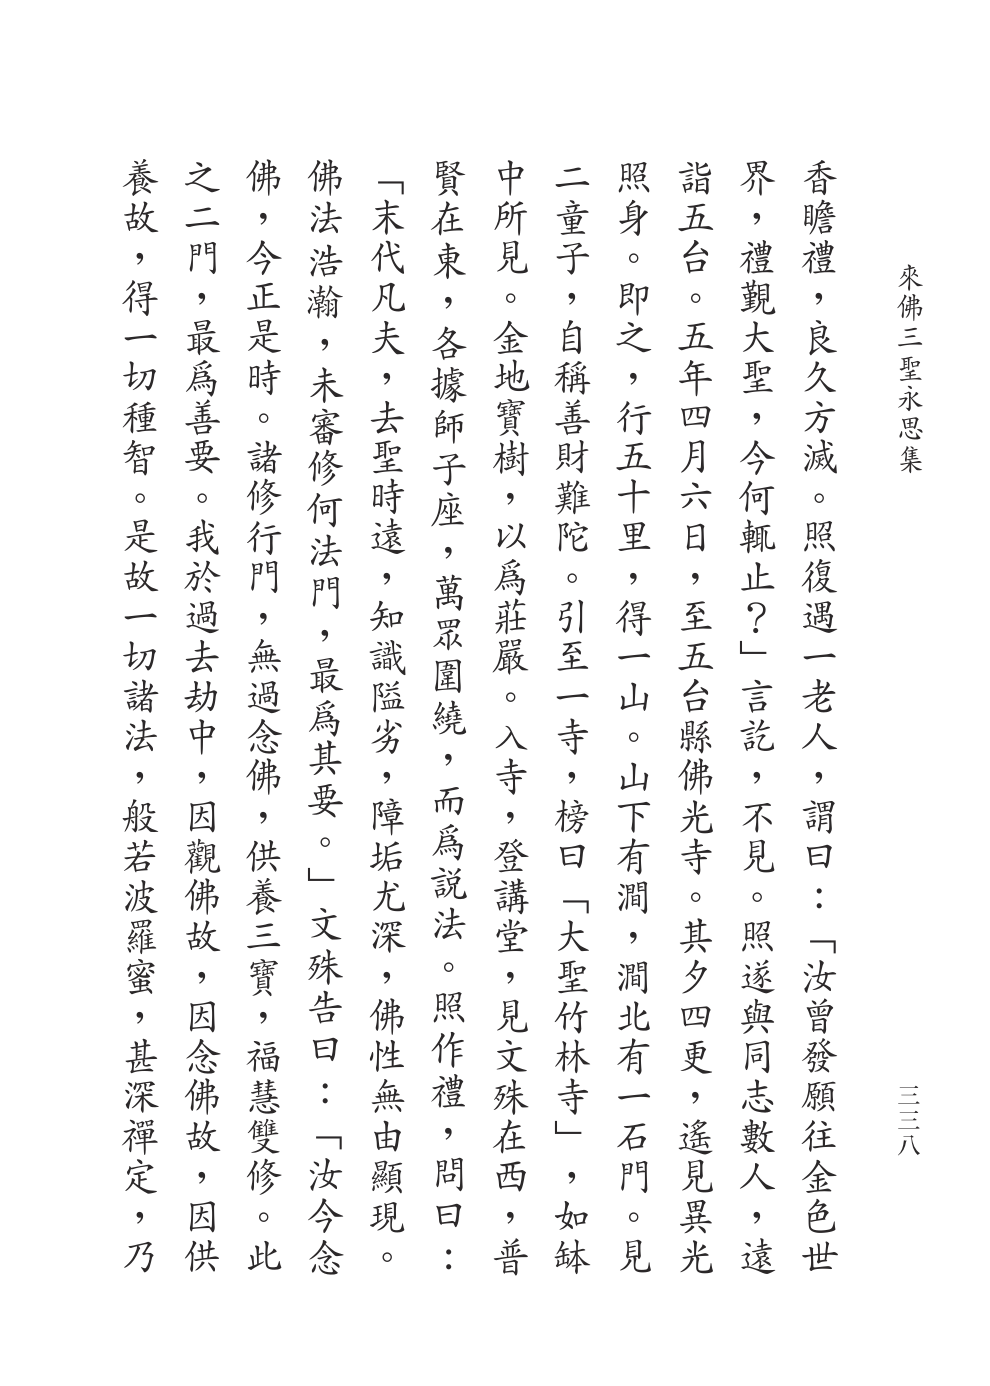 來佛三聖永思集
三三八
香瞻禮，良久方滅。照復遇一老人，謂曰：「汝曾發願往金色世
界，禮覲大聖，今何輒止？」言訖，不見。照遂與同志數人，遠
詣五台。五年四月六日，至五台縣佛光寺。其夕四更，遙見異光
照身。即之，行五十里，得一山。山下有澗，澗北有一石門。見
二童子，自稱善財難陀。引至一寺，榜曰「大聖竹林寺」，如缽
中所見。金地寶樹，以爲莊嚴。入寺，登講堂，見文殊在西，普
賢在東，各據師子座，萬眾圍繞，而爲說法。照作禮，問曰：
「末代凡夫，去聖時遠，知識隘劣，障垢尤深，佛性無由顯現。
佛法浩瀚，未審修何法門，最爲其要。」文殊告曰：「汝今念
佛，今正是時。諸修行門，無過念佛，供養三寶，福慧雙修。此
之二門，最爲善要。我於過去劫中，因觀佛故，因念佛故，因供
養故，得一切種智。是故一切諸法，般若波羅蜜，甚深禪定，乃